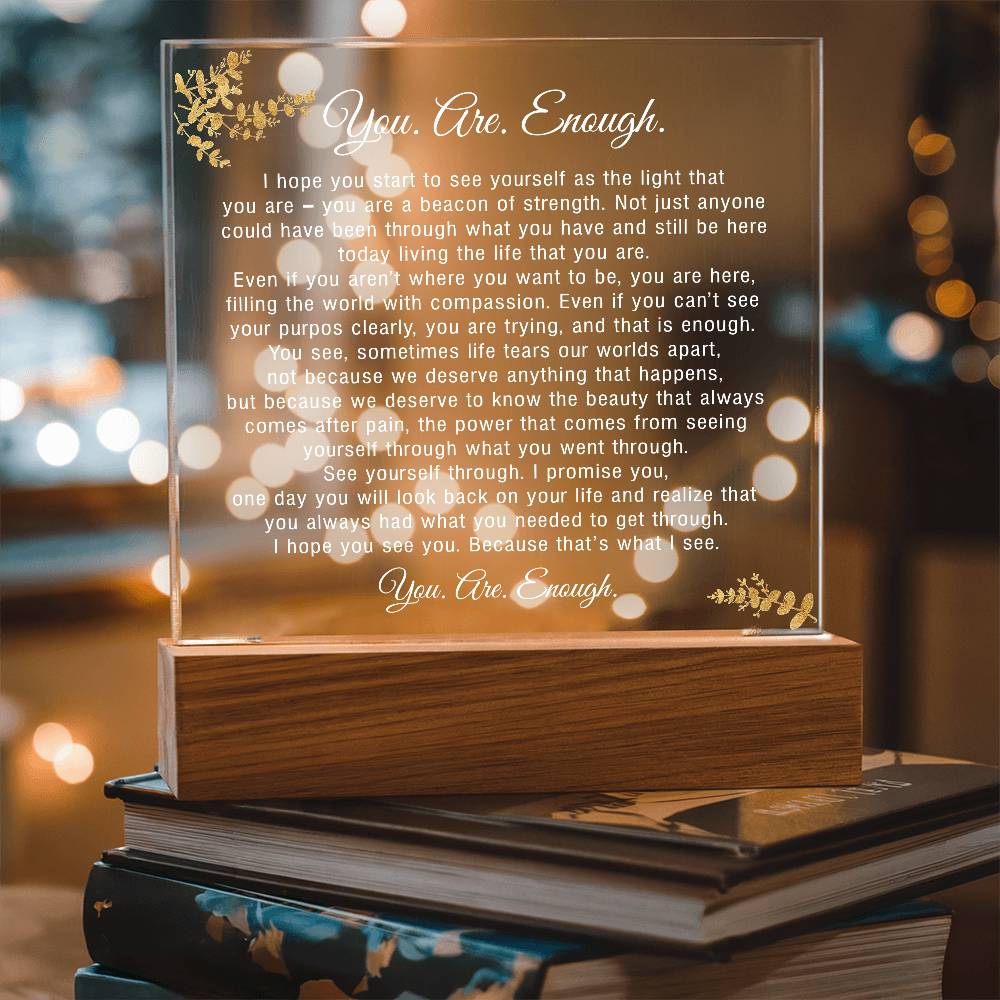 You. Are. Enough.
I hope you start to see yourself as the light that
you are – you are a beacon of strength. Not just anyone
could have been through what you have and still be here
today living the life that you are.
Even if you aren't where you want to be, you are here,
filling the world with compassion. Even if you can't see
your purpos clearly, you are trying, and that is enough.
You see, sometimes life tears our worlds apart,
not because we deserve anything that happens,
but because we deserve to know the beauty that always
comes after pain, the power that comes from seeing
yourself through what you went through.
See yourself through. I promise you,
one day you will look back on your life and realize that
you always had what you needed to get through.
I hope you see you. Because that's what I see.
You. Are. Enough.